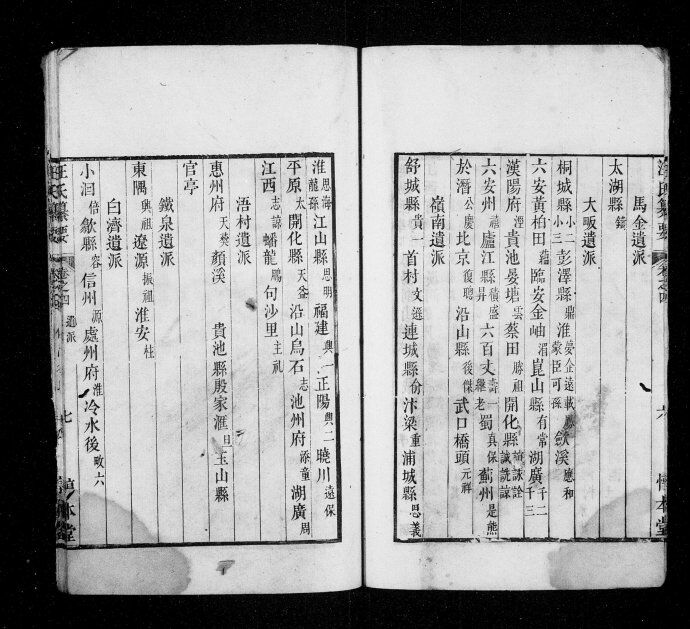 馬金遺派
太湖縣 鐃
大畈遺派
桐城縣 小二 小三 彭澤縣 鼎 淮 晏企遠載勝 蒙臣可孫 歙溪 應和
六安黃柏田 蘊 臨安金岫 湄 崑山縣 有常 湖廣 千二 千三
漢陽府 湮 貴池晏塘 雲 蔡田 勝祖 開化縣 詠詮 誠諕諒
六安州 福 廬江縣 積盛 昇 六百丈 壽一 繼老 蜀 真保 蘄州 是熊
於潛 公慶 北京 復聰 沿山縣 後傑 武口橋頭 元祥
嶺南遺派
舒城縣 貴一 首村 文遜 連城縣 份 汴梁 重 浦城縣 思義
六
惇本堂
淮 思海 龍孫 江山縣 思明 福建 興一 正陽 興二 曉川 遠保
平原 太 開化縣 天益 沿山烏石 志 池州府 添童 湖廣 周
江西 志諒 蟠龍 鵰 句沙里 主禮
浯村遺派
惠州府 天爕 顏溪 貴池縣殷家滙 旦 玉山縣
官亭
鐵泉遺派
東隅 興祖 遼源 振祖 淮安 桂
白濟遺派
小洄 倍 歙縣 容 信州 源 處州府 淮 冷水後 畋六
汪氏纂要 卷之四 遺派 七
惇本堂